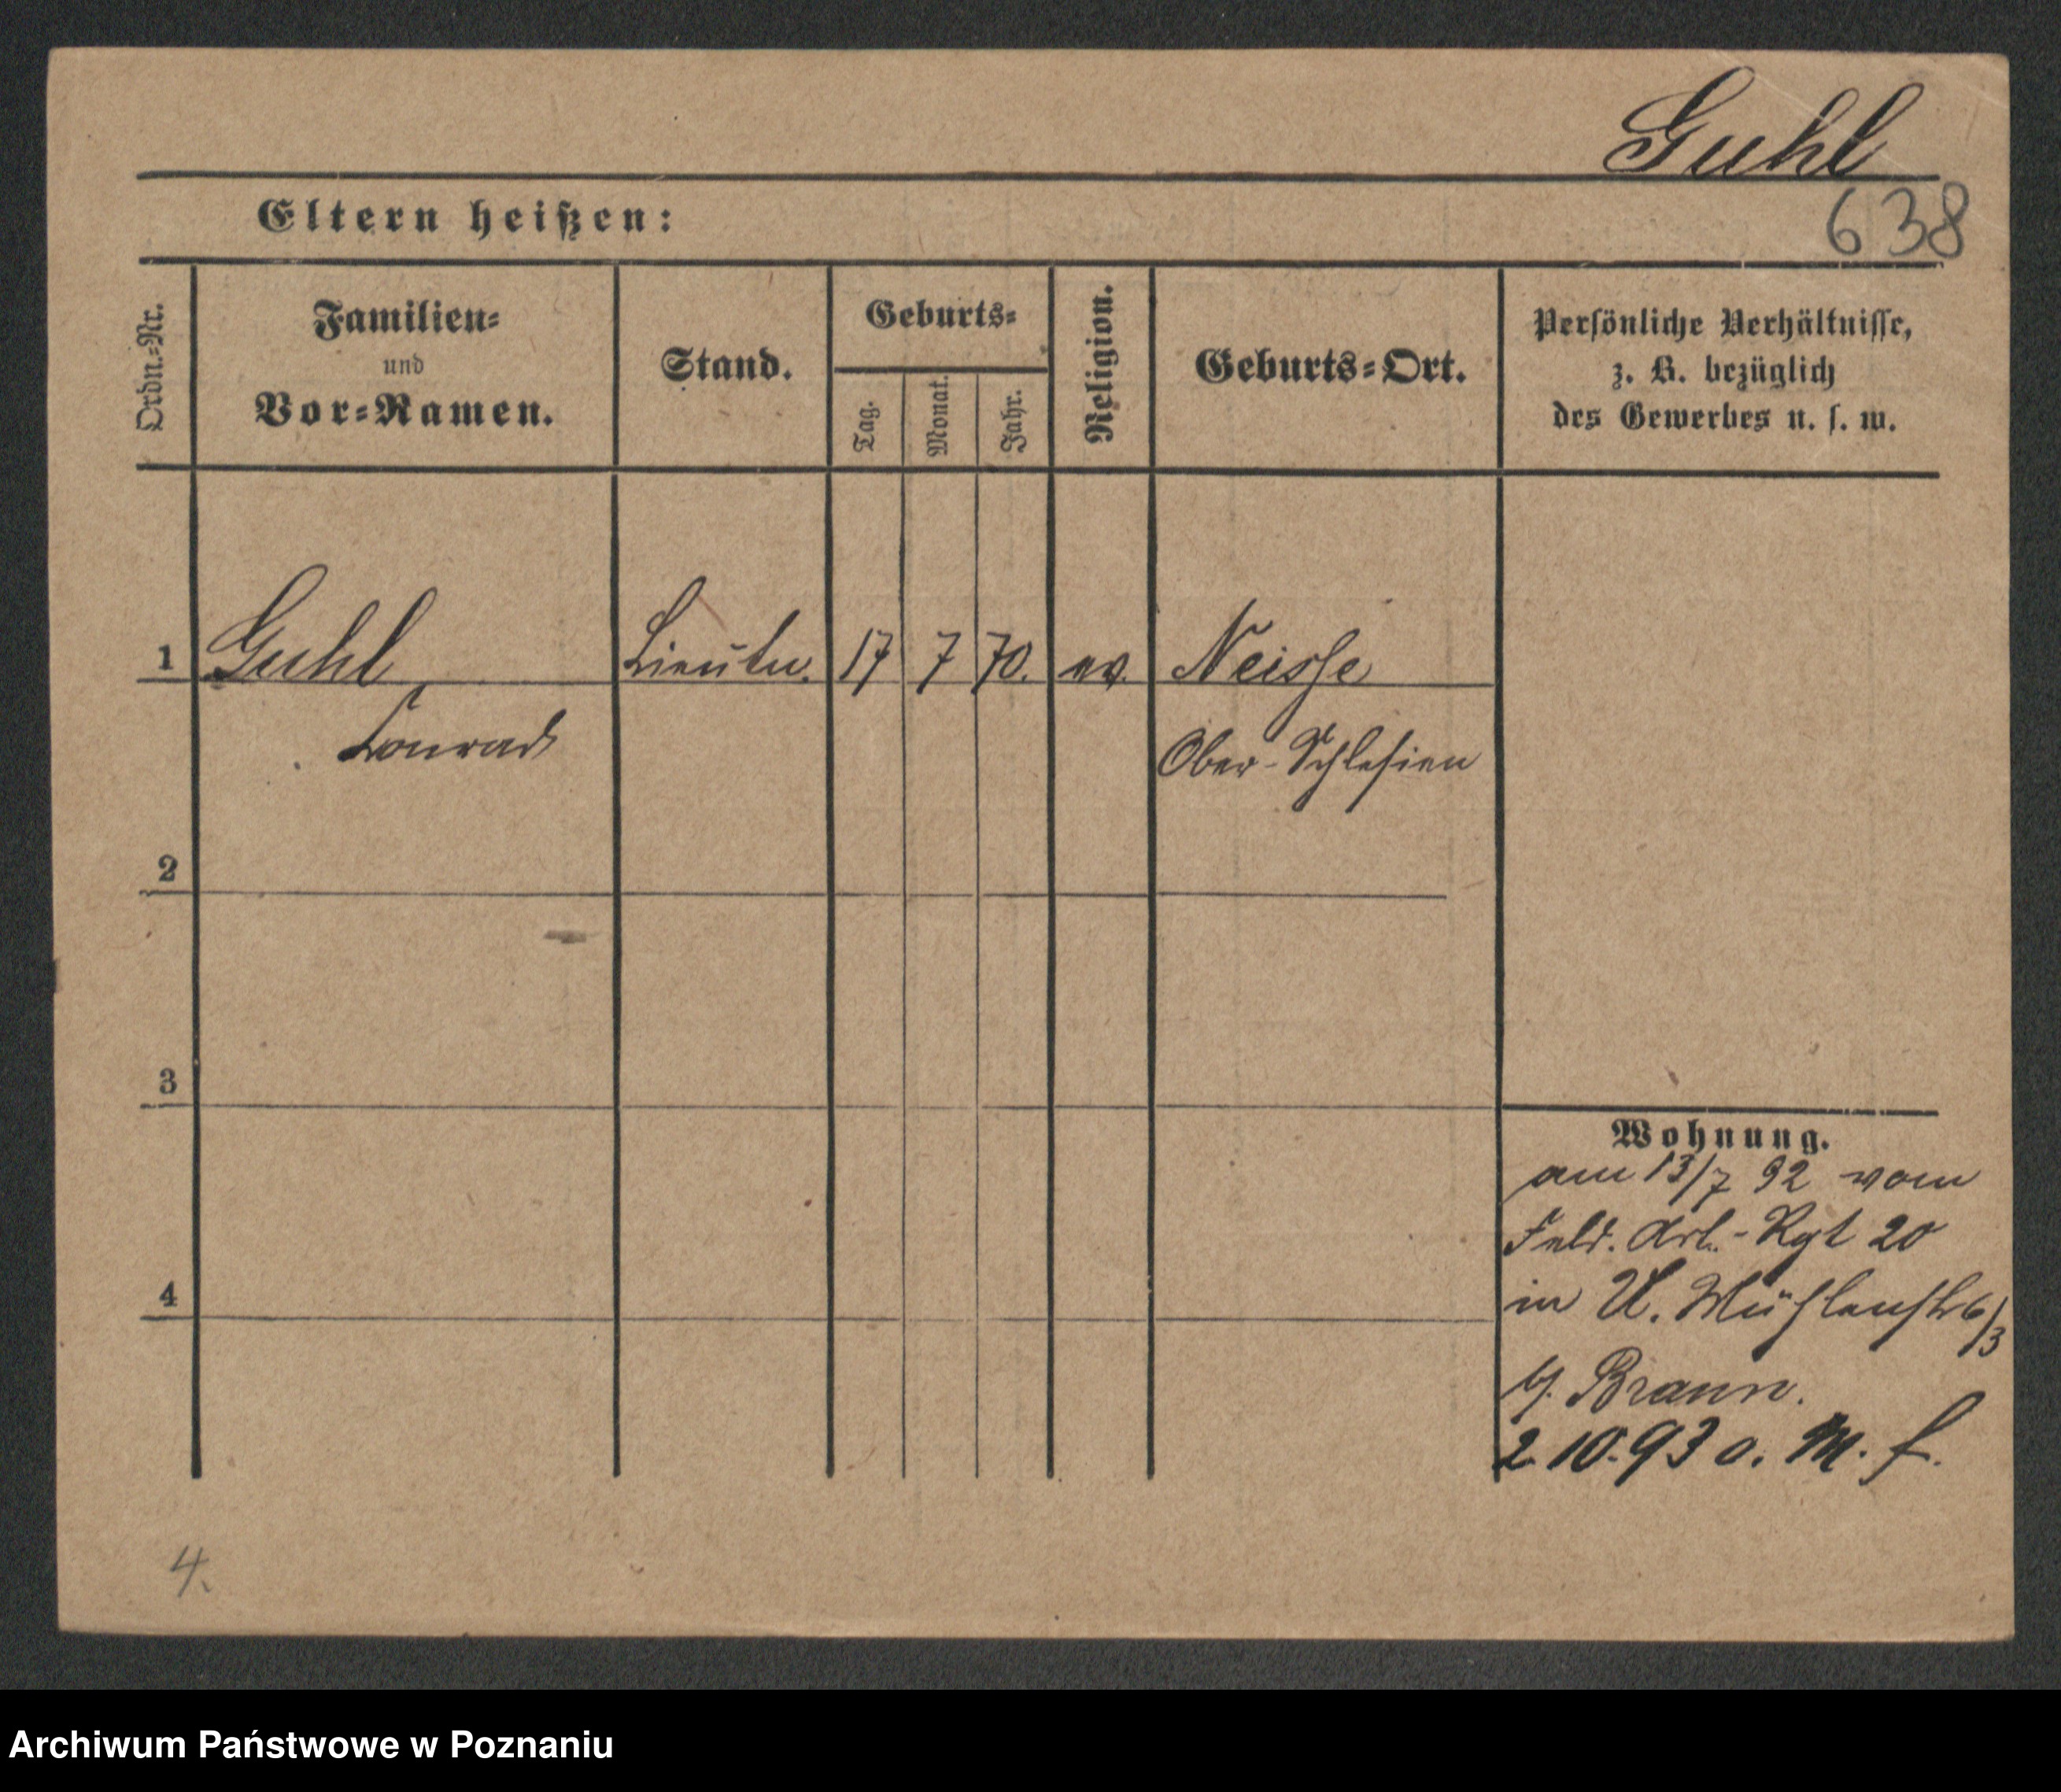 Guhl
638
Eltern heißen:
Ordn.-Nr.
Familien-
und
Vor-Namen.
Stand.
Geburts-
Tag.
Monat.
Jahr.
Religion.
Geburts-Ort.
Persönliche Verhältnisse,
z. B. bezüglich
des Gewerbes u. s. w.
1 Guhl Lieutn. 17 7 70. ev. Neisse
Conrad Ober-Schlesien
2
3
4
Wohnung.
am 13/7 92 vom
Feld. Art.-Rgt 20
in U. Mühlenstr 6/3
b/. Braun.
2.10.93 o. M. f.
4.
Archiwum Państwowe w Poznaniu